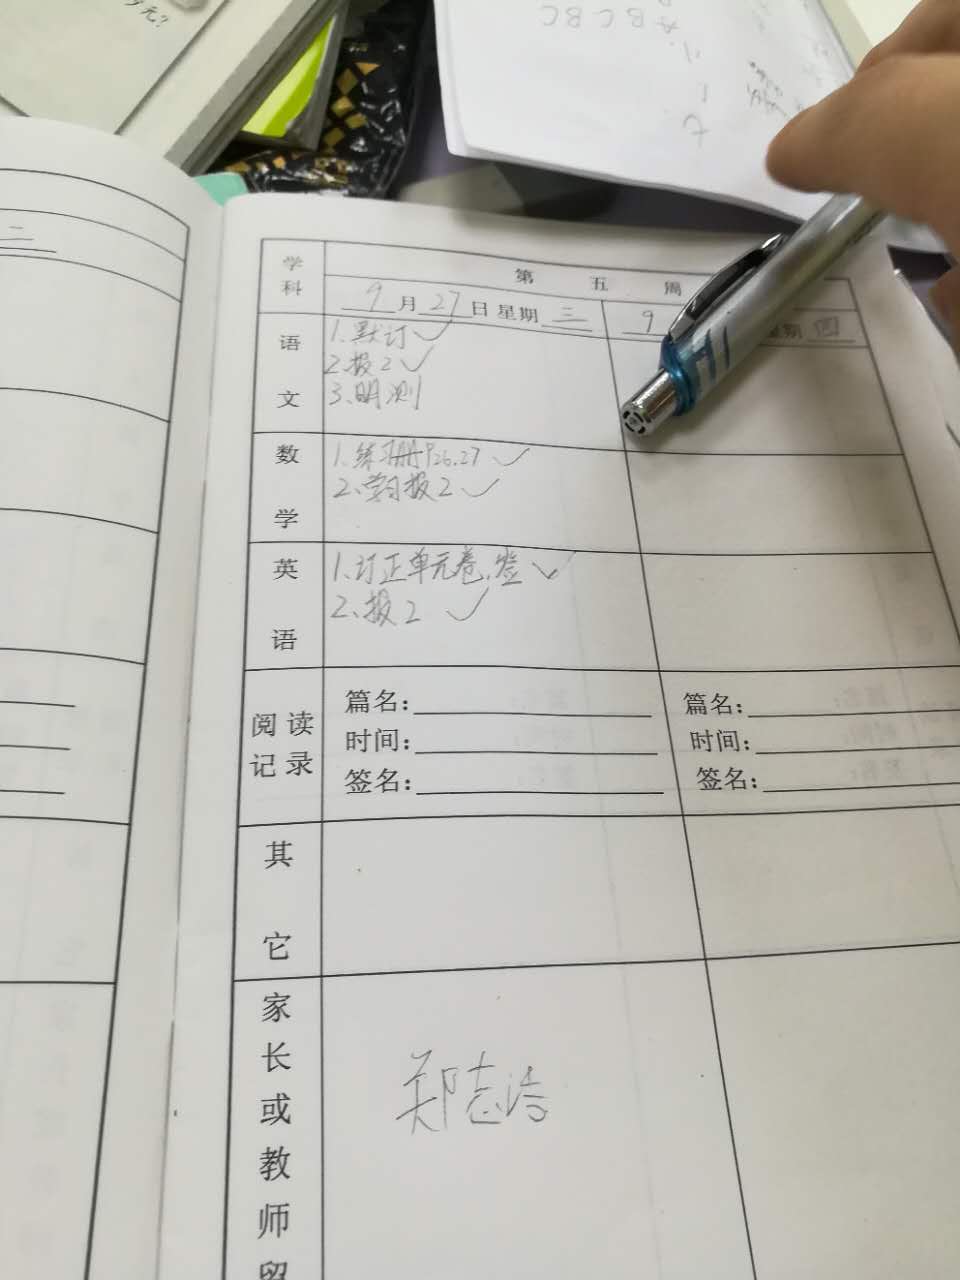 少元?
A B C B C
二
学科
第 五 周
9月27日 星期三
9
期四
语文
1.默订✓
2.报2✓
3.明测
数学
1.练习册P26.27✓
2.学习报2✓
英语
1.订正单元卷、签✓
2、报2✓
阅读记录
篇名:
时间:
签名:
篇名:
时间:
签名:
其它
家长或教师留
郑志浩